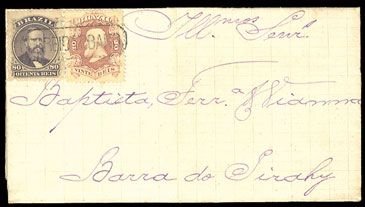 BRAZIL BRAZIL
80 80
OITENTA REIS VINTE REIS
Ill.mos Senr.
Baptista, Ferr.a Vianna
Barra do Pirahy